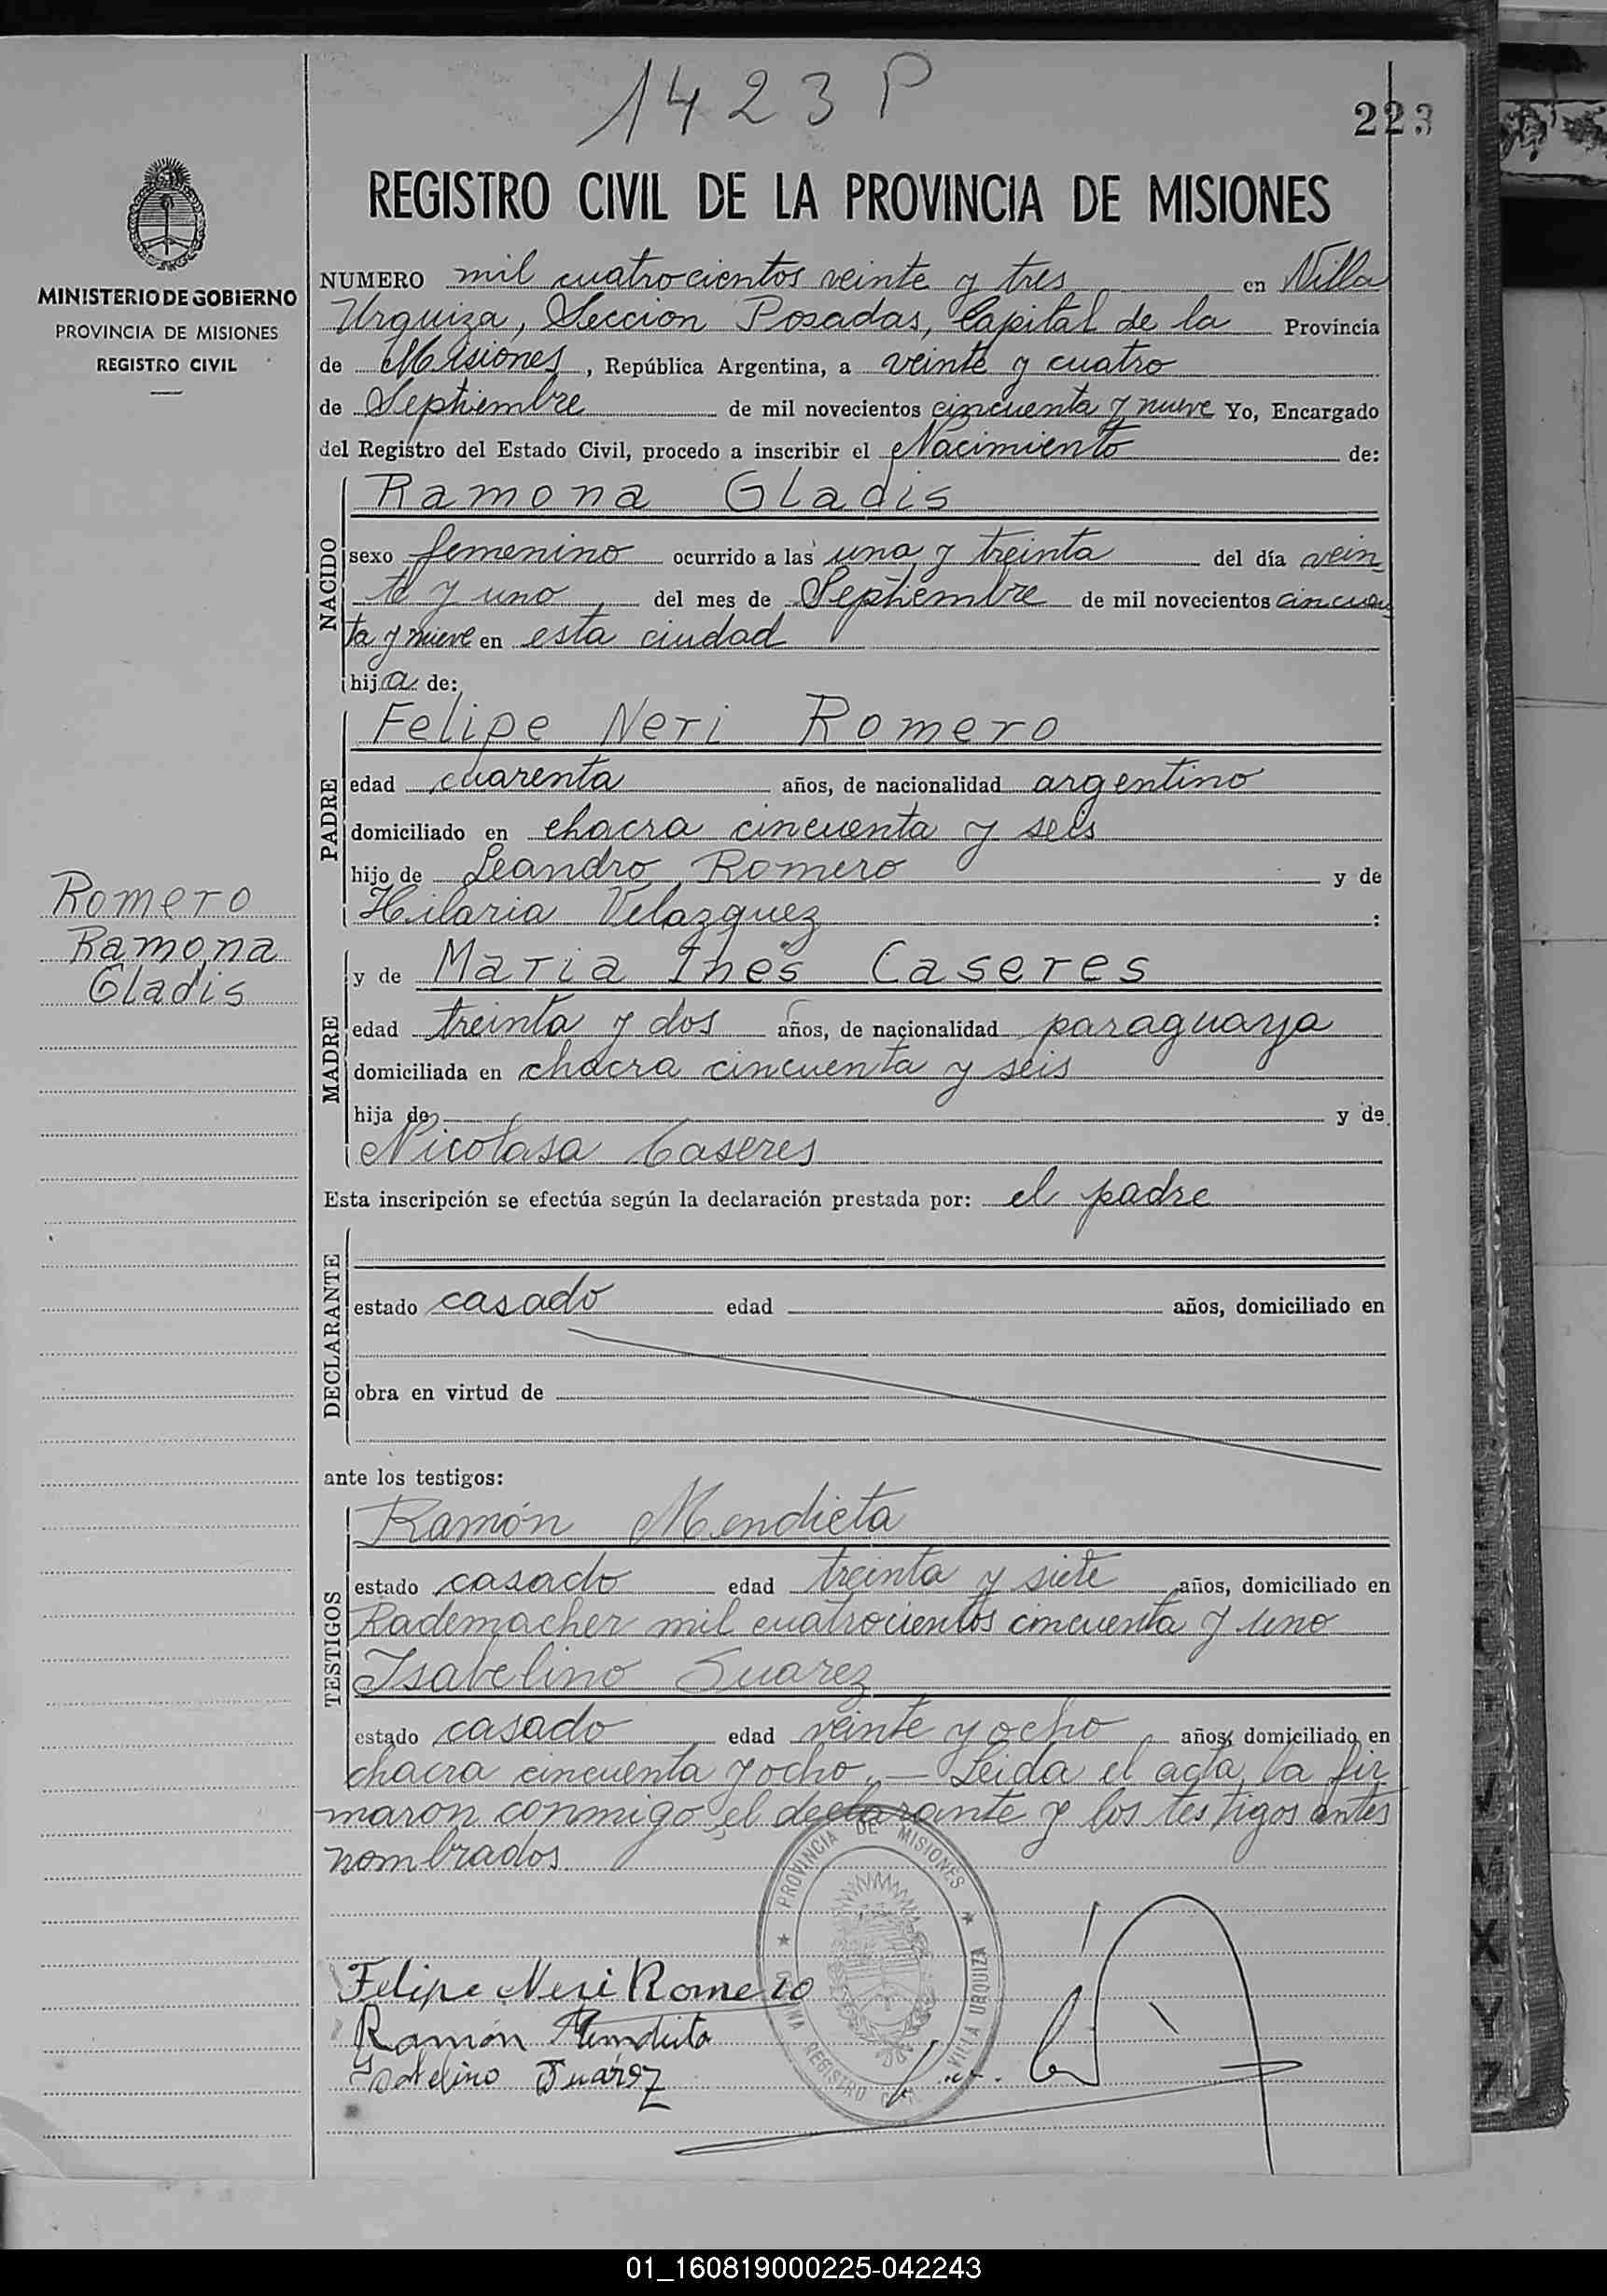 1423 P
223
MINISTERIO DE GOBIERNO
PROVINCIA DE MISIONES
REGISTRO CIVIL
REGISTRO CIVIL DE LA PROVINCIA DE MISIONES
NUMERO mil cuatrocientos veinte y tres en Villa
Urquiza, Seccion Posadas, Capital de la Provincia
de Misiones, República Argentina, a veinte y cuatro
de Septiembre de mil novecientos cincuenta y nueve Yo, Encargado
del Registro del Estado Civil, procedo a inscribir el Nacimiento de:
NACIDO
Ramona Gladis
sexo femenino ocurrido a las una y treinta del día vein
te y uno del mes de Septiembre de mil novecientos cincuen
ta y nueve en esta ciudad
hija de:
PADRE
Felipe Neri Romero
edad cuarenta años, de nacionalidad argentino
domiciliado en chacra cincuenta y seis
hijo de Leandro Romero y de
Hilaria Velazquez :
MADRE
y de Maria Inés Caseres
edad treinta y dos años, de nacionalidad paraguaya
domiciliada en chacra cincuenta y seis
hija de y de
Nicolasa Caseres
Romero
Ramona
Gladis
Esta inscripción se efectúa según la declaración prestada por: el padre
DECLARANTE
estado casado edad años, domiciliado en
obra en virtud de
ante los testigos:
TESTIGOS
Ramón Mendieta
estado casado edad treinta y siete años, domiciliado en
Rademacher mil cuatrocientos cincuenta y uno
Isabelino Suarez
estado casado edad veinte y ocho años, domiciliado en
chacra cincuenta y ocho.— Leida el acta, la fir
maron conmigo el declarante y los testigos antes
nombrados.
PROVINCIA DE MISIONES
VILLA URQUIZA
OFICINA REGISTRO CIVIL
Felipe Neri Romero
Ramón Mendieta
Isabelino Suárez
X
Y
Z
01_160819000225-042243